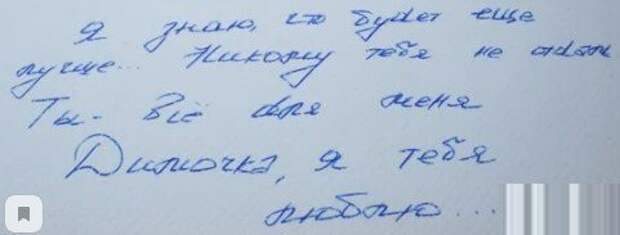 Я знаю, что будет еще
лучше... Никому тебя не отдам
Ты - Всё для меня
Димочка, я тебя
люблю...